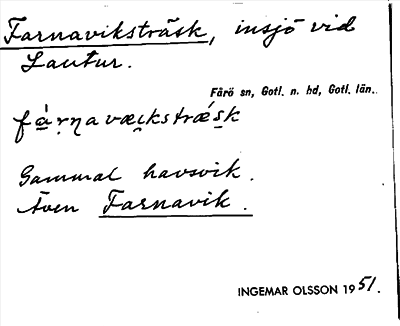 Farnaviksträsk, insjö vid
Lautur.
Fårö sn, Gotl. n. hd, Gotl. län.
fàrnavækstrǽsk
Gammal havsvik.
Även Farnavik.
INGEMAR OLSSON 1951.